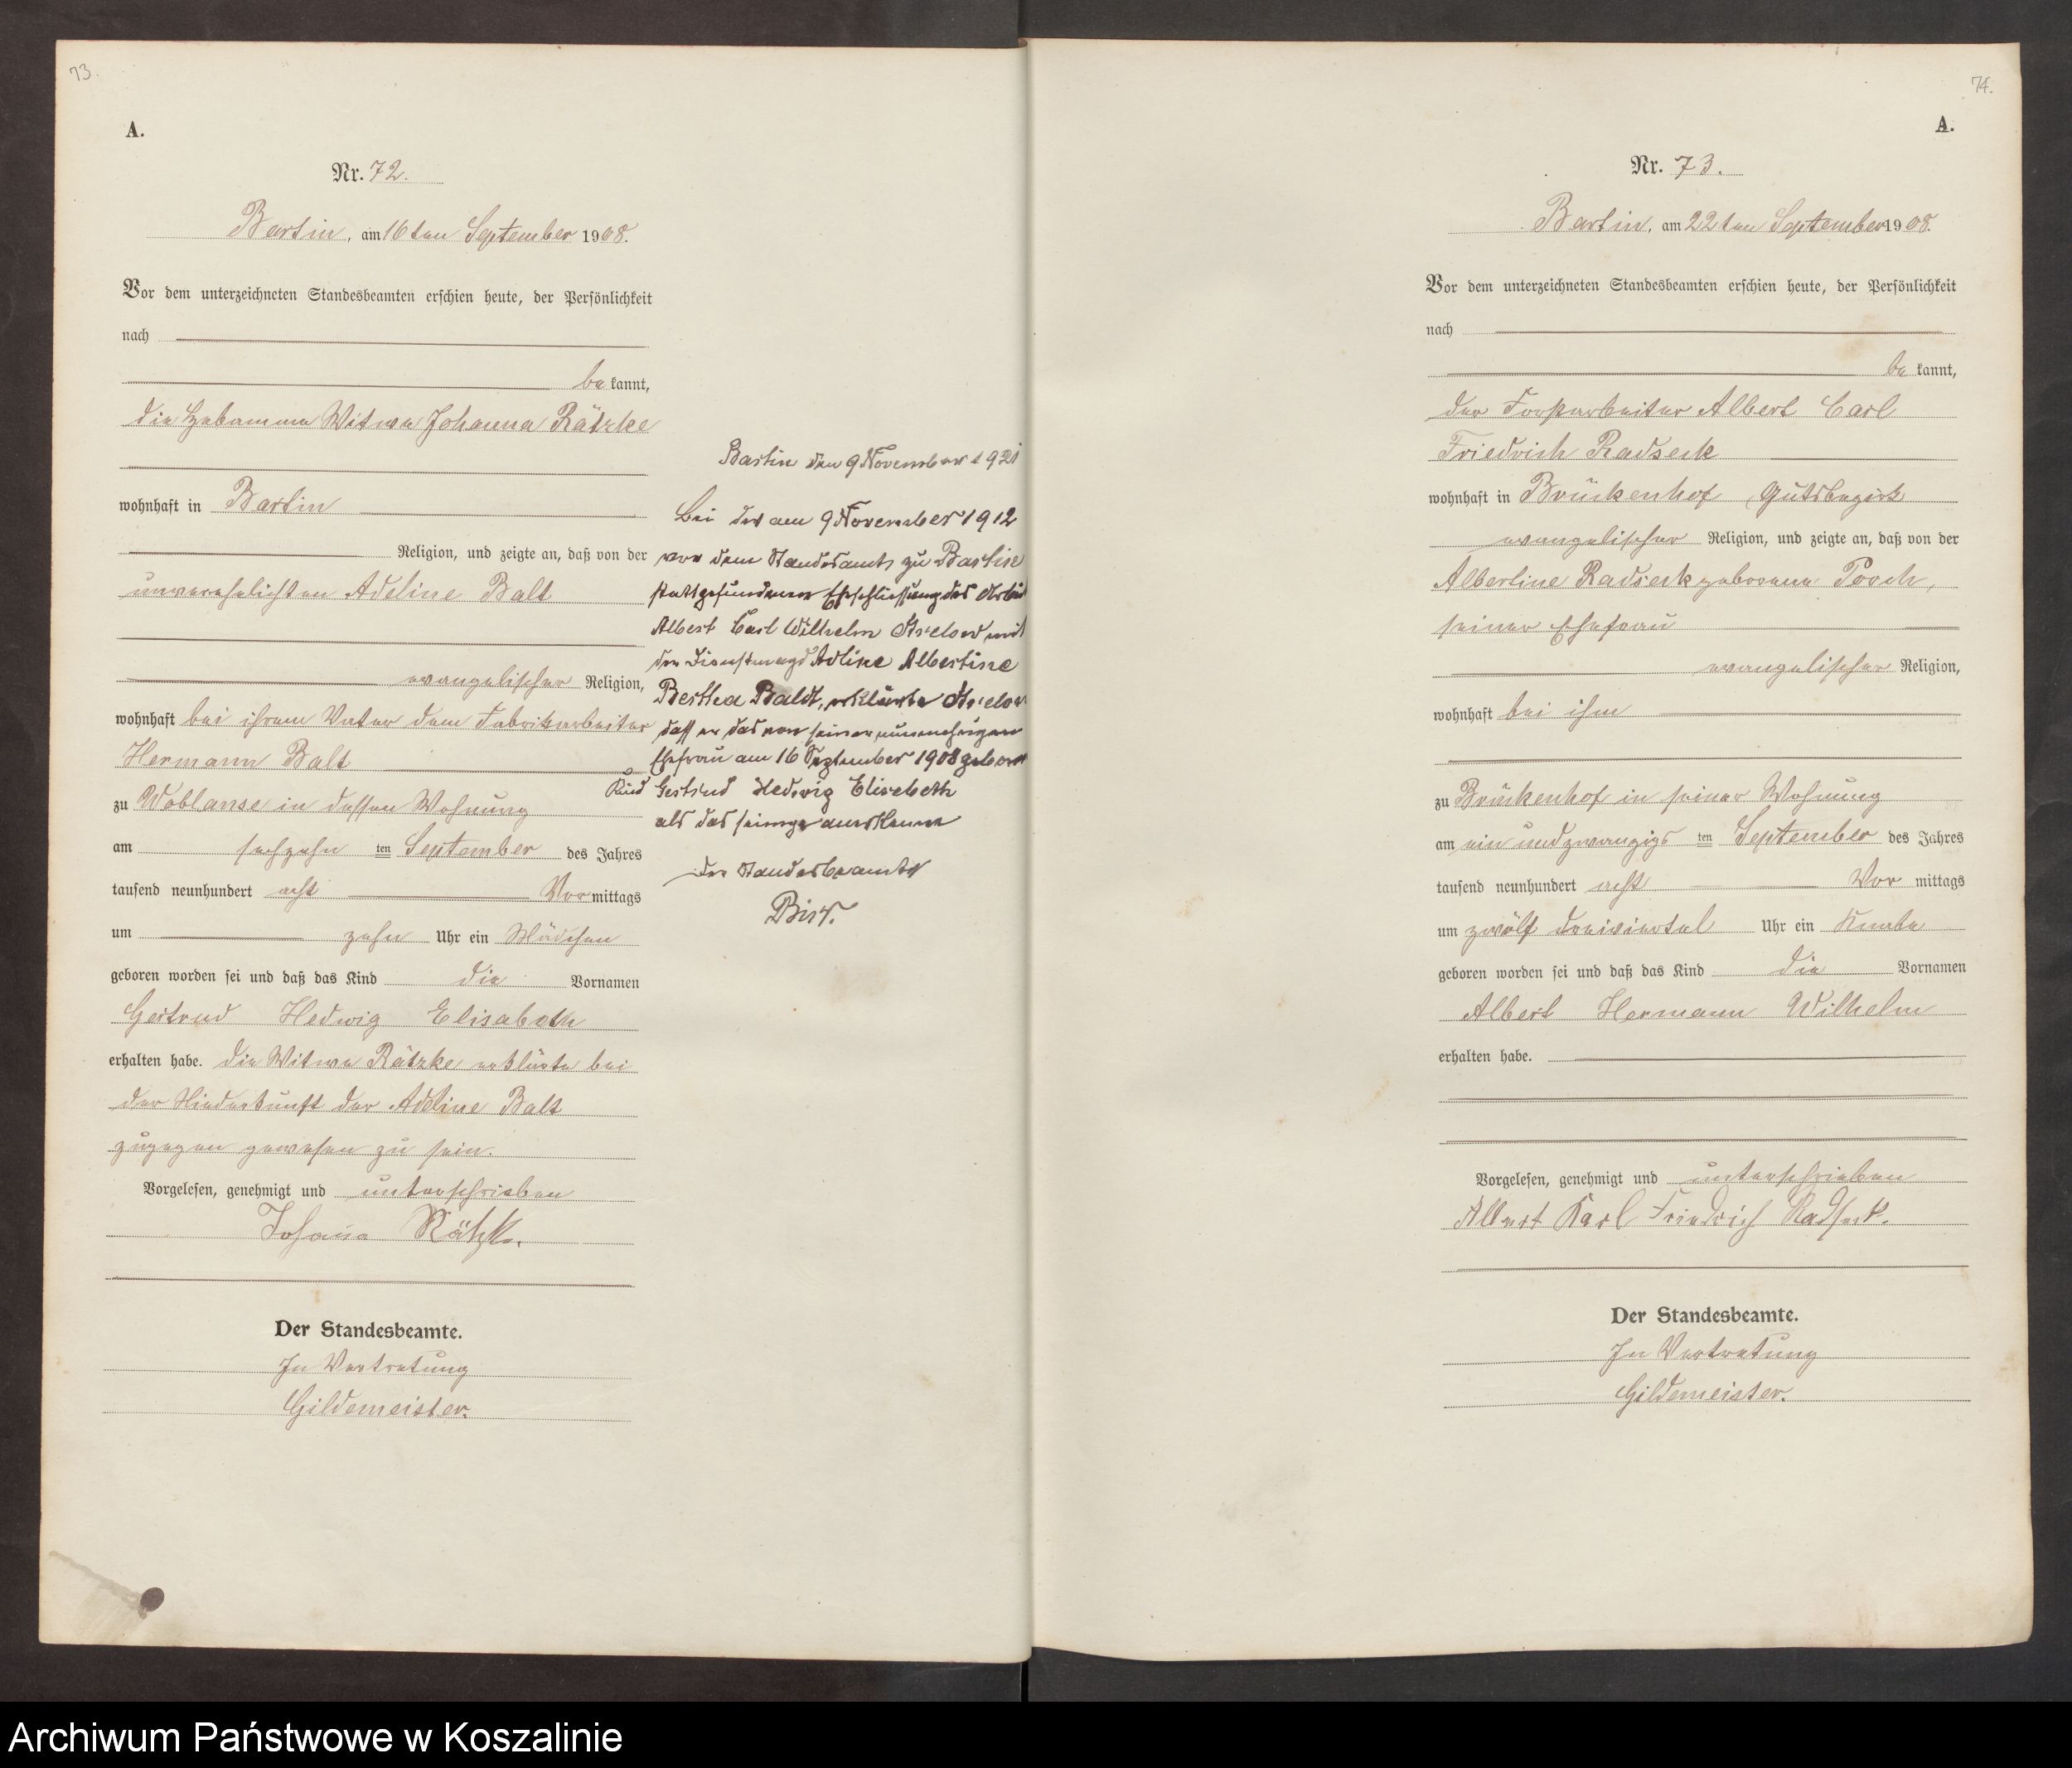 73.
A.
Nr. 72.
Bartin, am 16ten September 1908.
Vor dem unterzeichneten Standesbeamten erschien heute, der Persönlichkeit
nach
be kannt,
die Hebamme Witwe Johanna Rätzke
wohnhaft in Bartin
Religion, und zeigte an, daß von der
unverehelichten Adeline Balt
evangelischer Religion,
wohnhaft bei ihrem Vater dem Fabrikarbeiter
Hermann Balt
zu Woblanse in dessen Wohnung
am sechzehn ten September des Jahres
tausend neunhundert acht Vor mittags
um zehn Uhr ein Mädchen
geboren worden sei und daß das Kind die Vornamen
Gertrud Hedwig Elisabeth
erhalten habe. Die Witwe Rätzke erklärte bei
der Niederkunft der Adeline Balt
zugegen gewesen zu sein.
Vorgelesen, genehmigt und unterschrieben
Johana Rätzke.
Der Standesbeamte.
In Vertretung
Gildemeister.
Bartin den 9 November 1921
Bei der am 9 November 1912
vor dem Standesamte zu Bartin
stattgefundenen Eheschliessung des
Albert Carl Wilhelm mit
der Dienstmagd Adline Albertine
Bertha Baldt, erklärte
dass er das von seiner nunmehrigen
Ehefrau am 16 September 1908 geborene
Kind Gertrud Hedwig Elisebeth
als das seinige anerkenne
Der Standesbeamte
74.
A.
Nr. 73.
Bartin, am 22ten September 1908.
Vor dem unterzeichneten Standesbeamten erschien heute, der Persönlichkeit
nach
be kannt,
der Forstarbeiter Albert Carl
Friedrich Radseck
wohnhaft in Brückenhof, Gutsbezirk
evangelischer Religion, und zeigte an, daß von der
Albertine Radseck geborene Porch,
seiner Ehefrau
evangelischer Religion,
wohnhaft bei ihm
zu Brückenhof in seiner Wohnung
am ein und zwanzigs ten September des Jahres
tausend neunhundert acht Vor mittags
um zwölf dreiviertel Uhr ein Knabe
geboren worden sei und daß das Kind die Vornamen
Albert Hermann Wilhelm
erhalten habe.
Vorgelesen, genehmigt und unterschrieben
Albert Karl Friedrich Radseck.
Der Standesbeamte.
In Vertretung
Gildemeister.
Archiwum Państwowe w Koszalinie